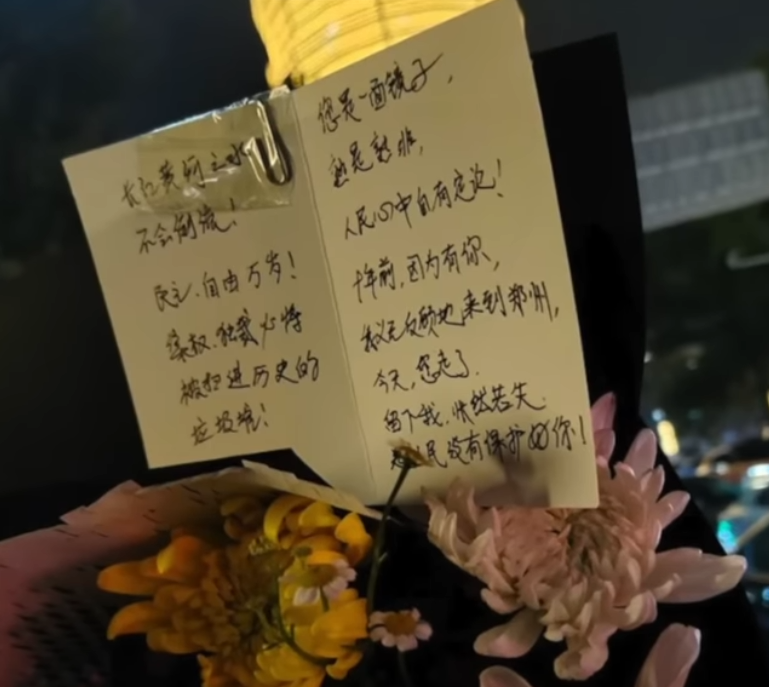 长江黄河之水
不会倒流！
民主、自由万岁！
集权、独裁必将
被扫进历史的
垃圾堆！
您是一面镜子，
孰是孰非，
人民心中自有定论！
十年前，因为有你，
我义无反顾地来到郑州，
今天，您走了.
留下我，怅然若失.
人民没有保护好你！